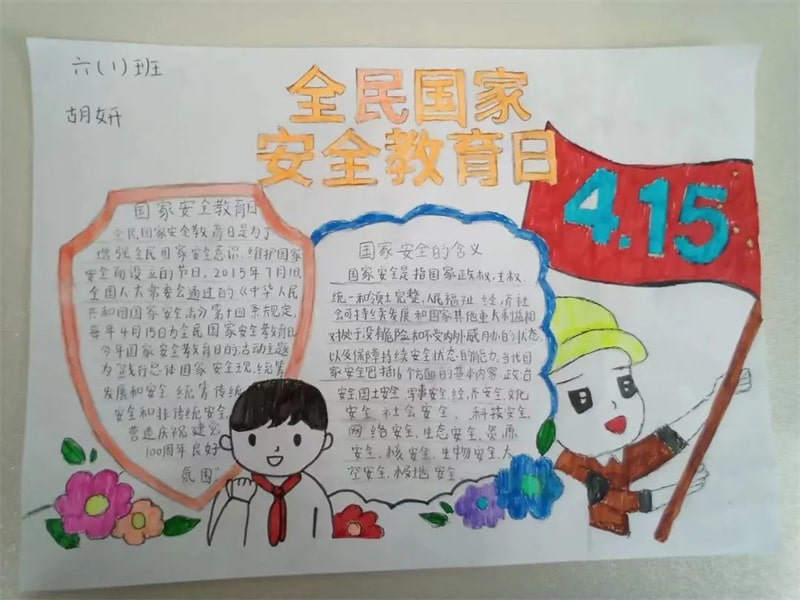 六(1)班
胡妍
全民国家
安全教育日
4.15
国家安全教育日
全民国家安全教育日是为了
增强全民国家安全意识,维护国家
安全而设立的节日。2015年7月1日,
全国人大常委会通过的《中华人民
共和国国家安全法》第十四条规定,
每年4月15日为全民国家安全教育日
今年国家安全教育日的活动主题
为"践行总体国家安全观,统筹
发展和安全,统筹传统
安全和非传统安全,
营造庆祝建党
100周年良好
氛围"
国家安全的含义
国家安全是指国家政权、主权、
统一和领土完整、人民福祉、经济社
会可持续发展和国家其他重大利益相
对处于没有危险和不受内外威胁的状态,
以及保障持续安全状态的能力。当代国
家安全包括16个方面的基本内容:政治
安全、国土安全、军事安全、经济安全、文化
安全、社会安全、科技安全,
网络安全、生态安全、资源
安全、核安全、生物安全、太
空安全、极地安全